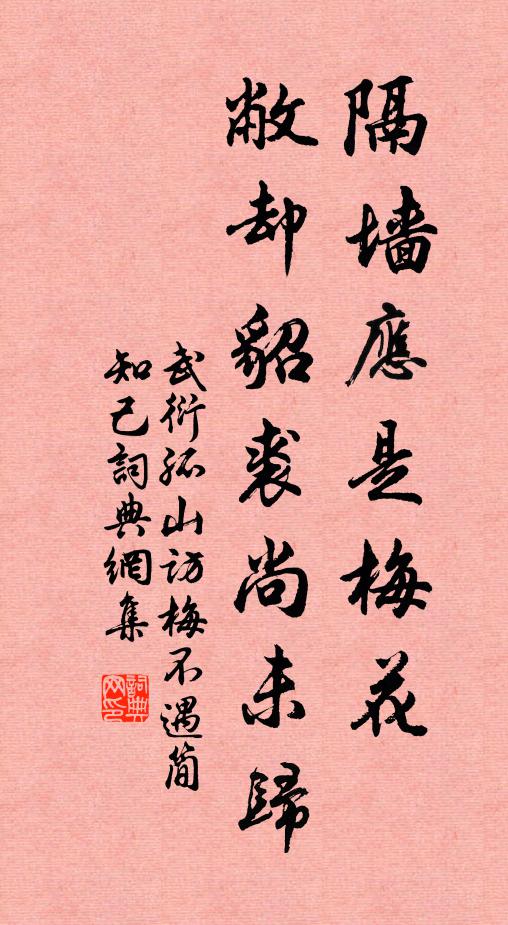 隔墙應是梅花
敝却貂裘尚未歸
武衍孤山訪梅不遇簡
知己詞典網集
詞典网印